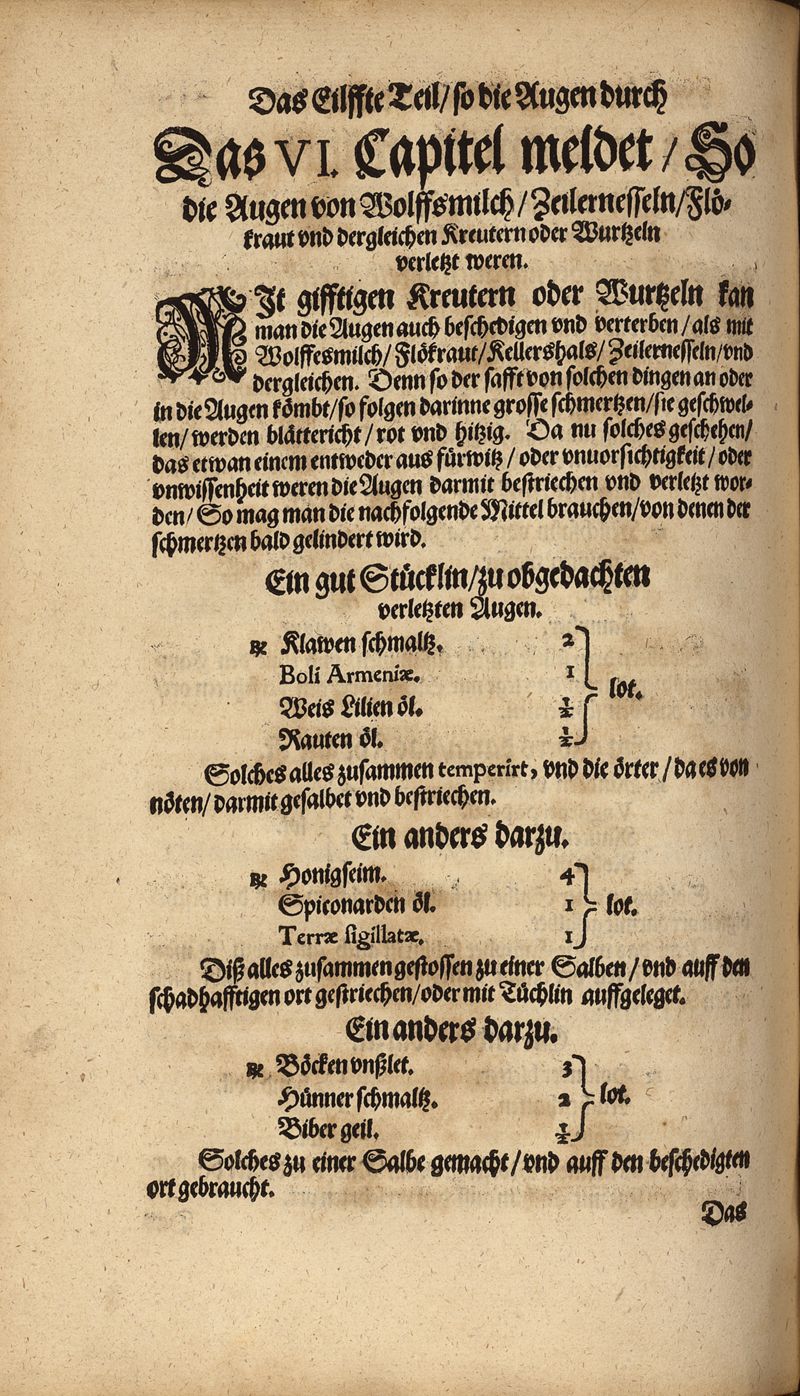 Das Eilffte Teil/ so die Augen durch
Das VI. Capitel meldet / So
die Augen von Wolffsmilch/ Zeilernesseln/ Flö-
kraut vnd dergleichen Kreutern oder Wurtzeln
verletzt weren.
MIt gifftigen Kreutern oder Wurtzeln kan
man die Augen auch beschedigen vnd verterben/ als mit
Wolffesmilch/ Flökraut/ Kellershals/ Zeilernesseln/ vnd
dergleichen. Denn so der safft von solchen dingen an oder
in die Augen kömbt/ so folgen darinne grosse schmertzen/ sie geschwel-
len/ werden blättericht/ rot vnd hitzig. Da nu solches geschehen/
das etwan einem entweder aus fürwitz/ oder vnuorsichtigkeit/ oder
vnwissenheit weren die Augen darmit bestriechen vnd verletzt wor-
den/ So mag man die nachfolgende Mittel brauchen/ von denen der
schmertzen bald gelindert wird.
Ein gut Stücklin/ zu obgedachten
verletzten Augen.
℞ Klawen schmaltz. 2
Boli Armeniæ. 1
Weis Lilien öl. ½
Rauten öl. ½ } lot.
Solches alles zusammen temperirt, vnd die örter/ da es von
nöten/ darmit gesalbet vnd bestriechen.
Ein anders darzu.
℞ Honigseim. 4
Spiconarden öl. 1 } lot.
Terræ sigillatæ. 1
Diß alles zusammen gestossen zu einer Salben/ vnd auff den
schadhafftigen ort gestriechen/ oder mit Tüchlin auffgeleget.
Ein anders darzu.
℞ Böcken vnßlet. 3
Hünner schmaltz. 2 } lot.
Biber geil. ½
Solches zu einer Salbe gemacht/ vnd auff den beschedigten
ort gebraucht.
Das